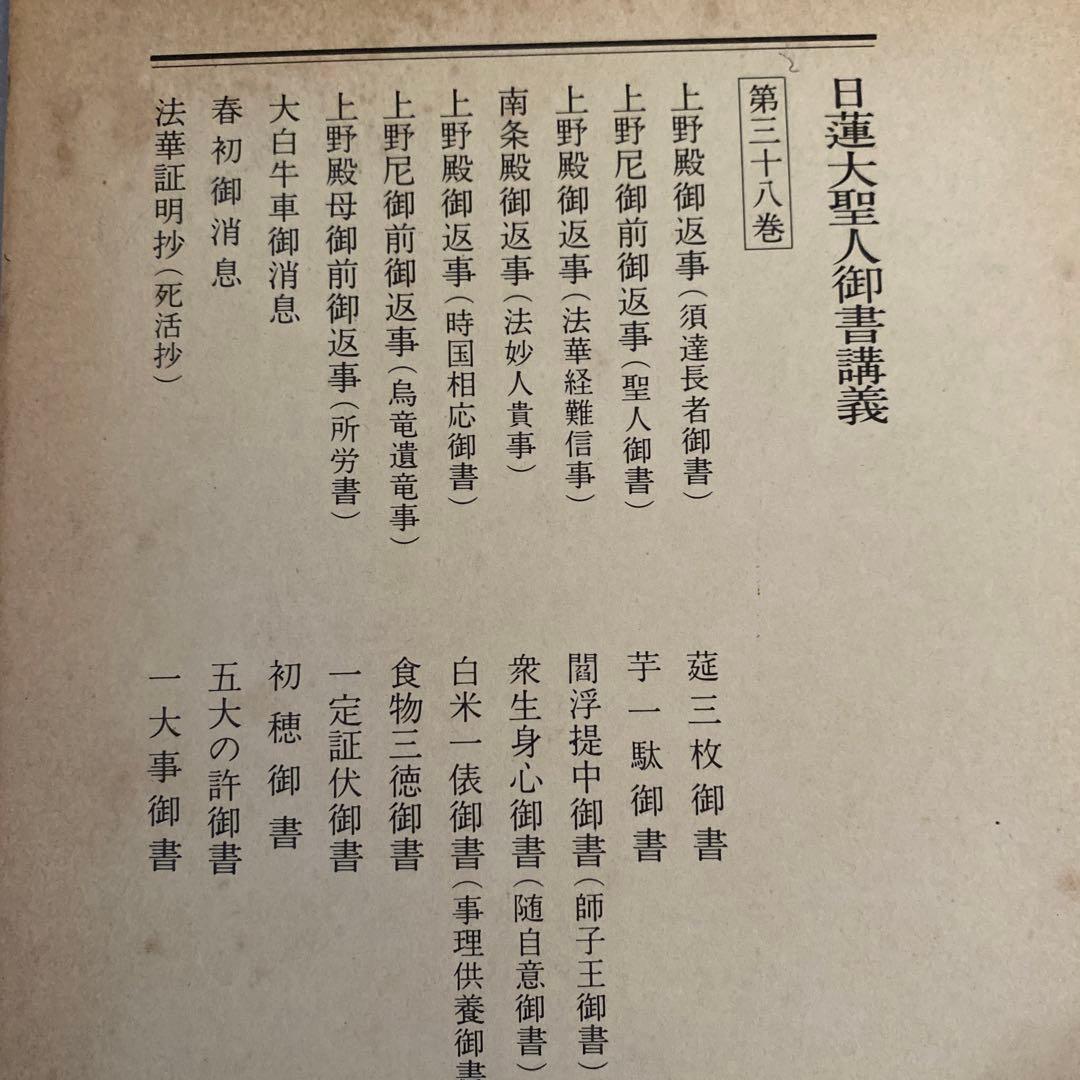 日蓮大聖人御書講義
第三十八巻
上野殿御返事(須達長者御書)
上野尼御前御返事(聖人御書)
上野殿御返事(法華経難信事)
南条殿御返事(法妙人貴事)
上野殿御返事(時国相応御書)
上野尼御前御返事(烏竜遺竜事)
上野殿母御前御返事(所労書)
大白牛車御消息
春初御消息
法華証明抄(死活抄)
莚三枚御書
芋一駄御書
閻浮提中御書(師子王御書)
衆生身心御書(随自意御書)
白米一俵御書(事理供養御書
食物三徳御書
一定証伏御書
初穂御書
五大の許御書
一大事御書